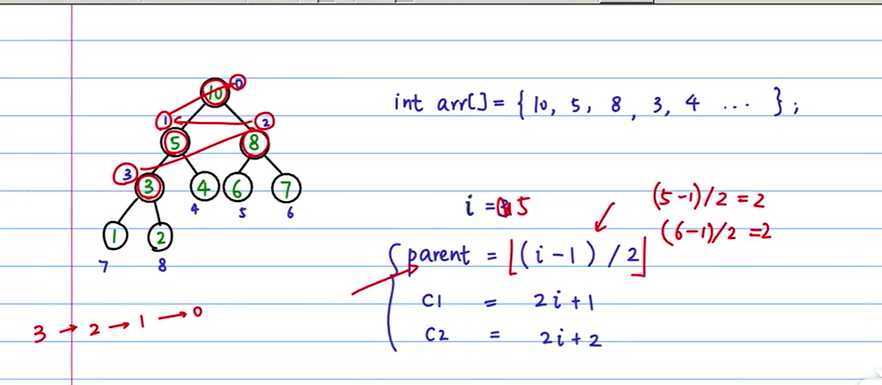 10 0
int arr[] = { 10, 5, 8, 3, 4 ... };
1 2
5 8
3
3 4 6 7
4 5 6
i = 5
(5-1)/2 = 2
(6-1)/2 = 2
1 2
7 8
parent = ⌊(i-1) / 2⌋
C1 = 2i+1
C2 = 2i+2
3 → 2 → 1 → 0